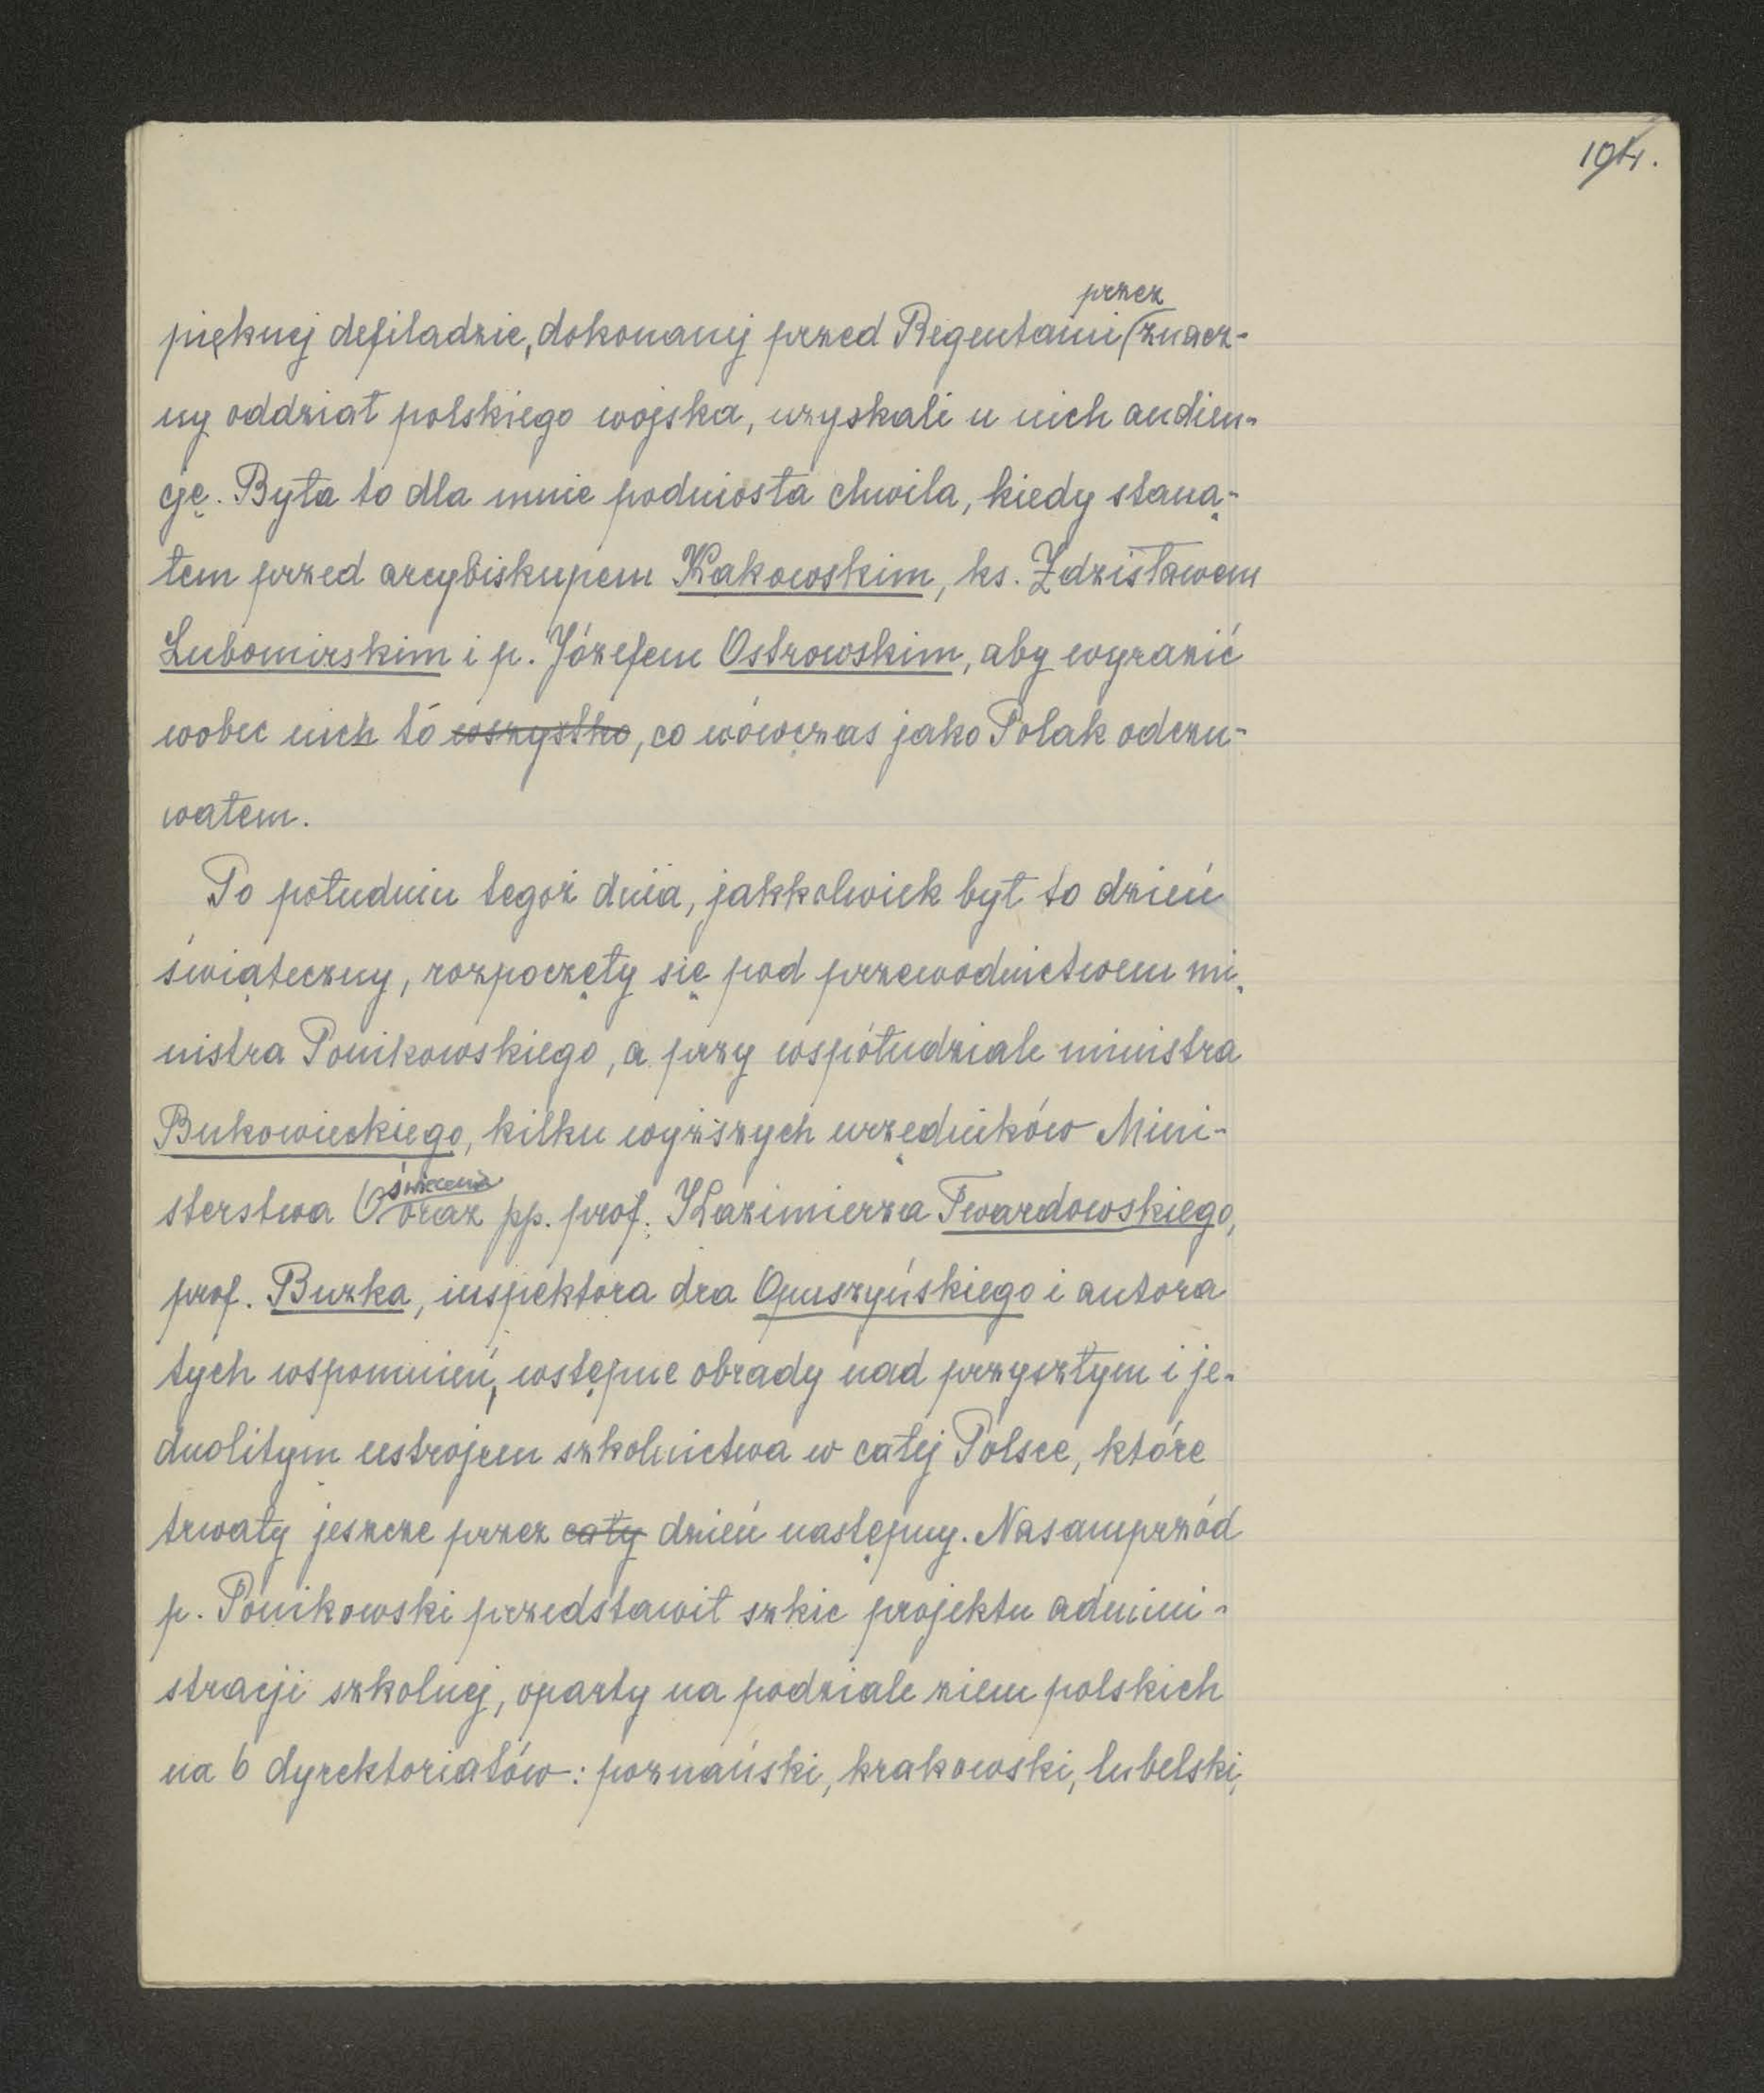 194.
przez
pięknej defiladzie, dokonanej przed Regentami (znacz-
ny oddział polskiego wojska, uzyskali u nich audien-
cję. Była to dla mnie podniosła chwila, kiedy staną-
łem przed arcybiskupem Kakowskim, ks. Zdzisławem
Lubomirskim i p. Józefem Ostrowskim, aby wyrazić
wobec nich to wszystko, co wówczas jako Polak odczu-
wałem.
Po południu tegoż dnia, jakkolwiek był to dzień
świąteczny, rozpoczęły się pod przewodnictwem mi-
nistra Ponikowskiego, a przy współudziale ministra
Bukowieckiego, kilku wyższych urzędników Mini-
świecenia
sterstwa O oraz pp. prof. Kazimierza Twardowskiego,
prof. Buzka, inspektora dra Opuszyńskiego i autora
tych wspomnień, wstępne obrady nad przyszłym i je-
dnolitym ustrojem szkolnictwa w całej Polsce, które
trwały jeszcze przez cały dzień następny. Nasamprzód
p. Ponikowski przedstawił szkic projektu admini-
stracji szkolnej, oparty na podziale ziem polskich
na 6 dyrektoriatów: poznański, krakowski, lubelski,